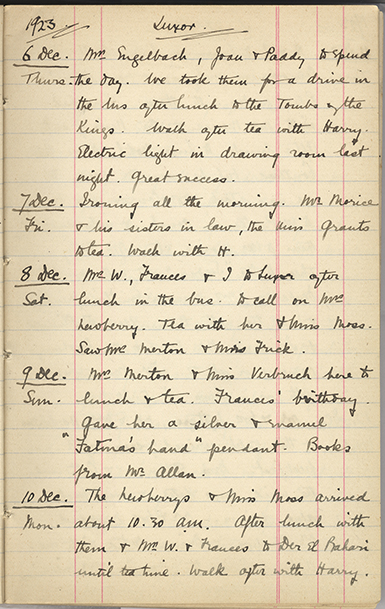 1923 Luxor.
6 Dec. Mrs Engelbach, Joan & Paddy to spend
Thurs. the day. We took them for a drive in
the bus after lunch to the Tombs of the
Kings. Walk after tea with Harry.
Electric light in drawing room last
night. Great success.
7 Dec. Ironing all the morning. Mr Morice
Fri. & his sisters in law, the Miss Grants
to tea. Walk with H.
8 Dec. Mr W., Frances & I to Luxor after
Sat. lunch in the bus. To call on Mrs
Newberry. Tea with her & Miss Moss.
Saw Mr Merton & Miss Frick.
9 Dec. Mr Merton & Miss here to
Sun. lunch & tea. Frances' birthday.
Gave her a silver & enamel
"Fatima's hand" pendant. Books
from Mr Allan.
10 Dec. The Newberrys & Miss Moss arrived
Mon. about 10.30 am. After lunch with
them & Mr W. & Frances to Der El Bahari
until tea time. Walk after with Harry.